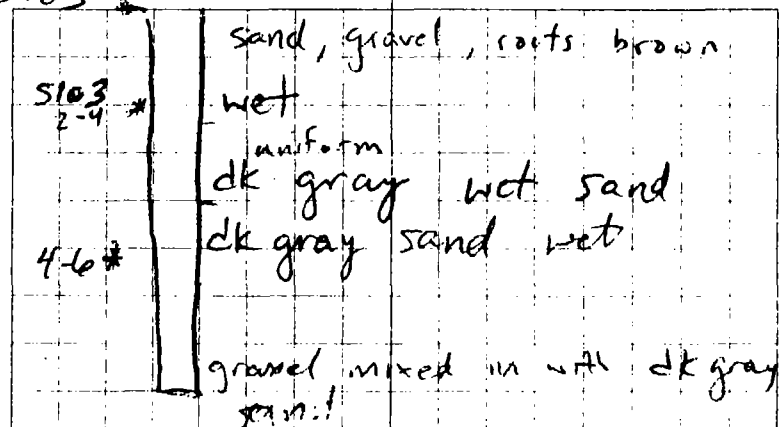 sand, gravel, roots brown
S103 * wet
2-4
uniform
dk gray wet sand
dk gray sand wet
4-6 *
gravel mixed in with dk gray